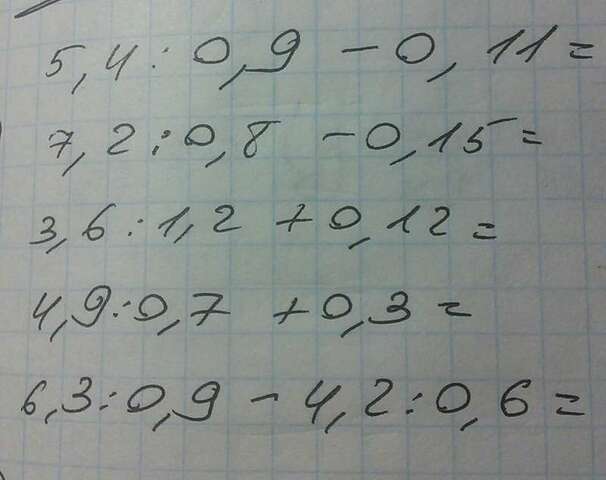 5,4 : 0,9 - 0,11 =
7,2 : 0,8 - 0,15 =
3,6 : 1,2 + 0,12 =
4,9 : 0,7 + 0,3 =
6,3 : 0,9 - 4,2 : 0,6 =